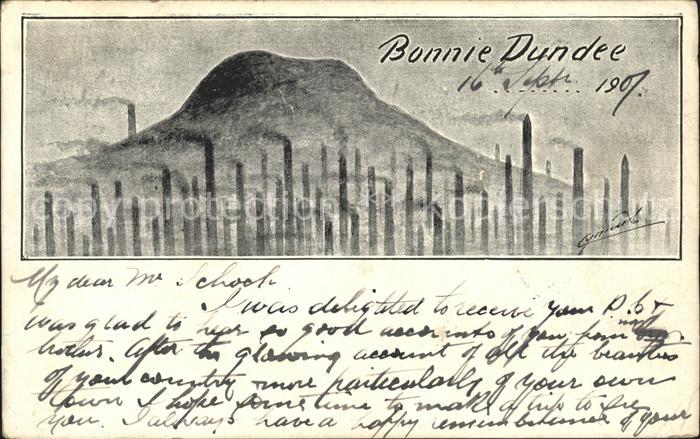 Bonnie Dundee
16th Sept. 1907.
My dear Mr Schoch
I was delighted to receive your P.C. &
was glad to hear so good accounts of you from
. After the glowing account of all the beauties
of your country more particularly of your own
town I hope sometime to make a trip to see
you. I always have a happy remembrance of your